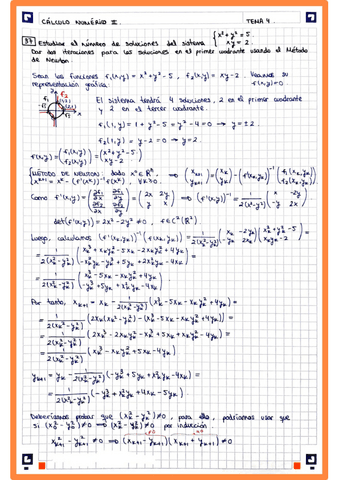 CÁLCULO NUMÉRICO II. TEMA 4.
37 Estudiar el número de soluciones del sistema { x² + y² = 5. xy = 2.
Dar dos iteraciones para las soluciones en el primer cuadrante usando el Método
de Newton.
Sean las funciones f₁(x,y) = x² + y² - 5, f₂(x,y) = xy - 2.
representación gráfica: f(x,y) = 0
El sistema tendrá 4 soluciones, 2 en el primer cuadrante
y 2 en el tercer cuadrante.
f₁(1,y) = 1 + y² - 5 = y² - 4 = 0 → y = ±2
f₂(1,y) = y - 2 = 0 → y = 2.
f(x,y) = (f₁(x,y) f₂(x,y)) = (x² + y² - 5 xy - 2)
MÉTODO DE NEWTON: dado x⁰ ∈ ℝ²,
Como f'(x,y) = (∂f₁/∂x ∂f₁/∂y ∂f₂/∂x ∂f₂/∂y) = (2x 2y y x) ⟹ (f'(x,y))⁻¹ = 1/2(x²-y²) (x -2y -y 2x)
det(f'(x,y)) = 2x² - 2y² ≠ 0, f ∈ C²(ℝ²).
Luego, calculamos (f'(xₖ,yₖ))⁻¹ (f(xₖ,yₖ)) = 1/2(xₖ²-yₖ²) (xₖ -2yₖ -yₖ 2xₖ) (xₖ²+yₖ²-5 xₖyₖ-2) =
= 1/2(xₖ²-yₖ²) (xₖ³ + xₖyₖ² - 5xₖ - 2xₖyₖ² + 4yₖ -xₖ²yₖ - yₖ³ + 5yₖ + 2xₖ²yₖ - 4xₖ) =
= 1/2(xₖ²-yₖ²) (xₖ³ - 5xₖ - xₖyₖ² + 4yₖ -yₖ³ + 5yₖ + xₖ²yₖ - 4xₖ).
Por tanto, xₖ₊₁ = xₖ - 1/2(xₖ²-yₖ²) (xₖ³ - 5xₖ - xₖyₖ² + 4yₖ) =
= 1/2(xₖ²-yₖ²) (2xₖ(xₖ²-yₖ²) - (xₖ³ - 5xₖ - xₖyₖ² + 4yₖ)) =
= 1/2(xₖ²-yₖ²) (2xₖ³ - 2xₖyₖ² - xₖ³ + 5xₖ + xₖyₖ² - 4yₖ) =
= 1/2(xₖ²-yₖ²) (xₖ³ - xₖyₖ² + 5xₖ - 4yₖ)
yₖ₊₁ = yₖ - 1/2(xₖ²-yₖ²) (-yₖ³ + 5yₖ + xₖ²yₖ - 4xₖ) =
= 1/2(xₖ²-yₖ²) (-yₖ³ + xₖ²yₖ + 4xₖ - 5yₖ)
Deberíamos probar que (xₖ²-yₖ²) ≠ 0, para ello, podríamos usar que
si (x₀²-y₀²) ≠ 0 ⟹ (xₖ²-yₖ²) ≠ 0 por inducción.
xₖ₊₁² - yₖ₊₁² ≠ 0 ⟹ (xₖ₊₁ - yₖ₊₁)(xₖ₊₁ + yₖ₊₁) ≠ 0